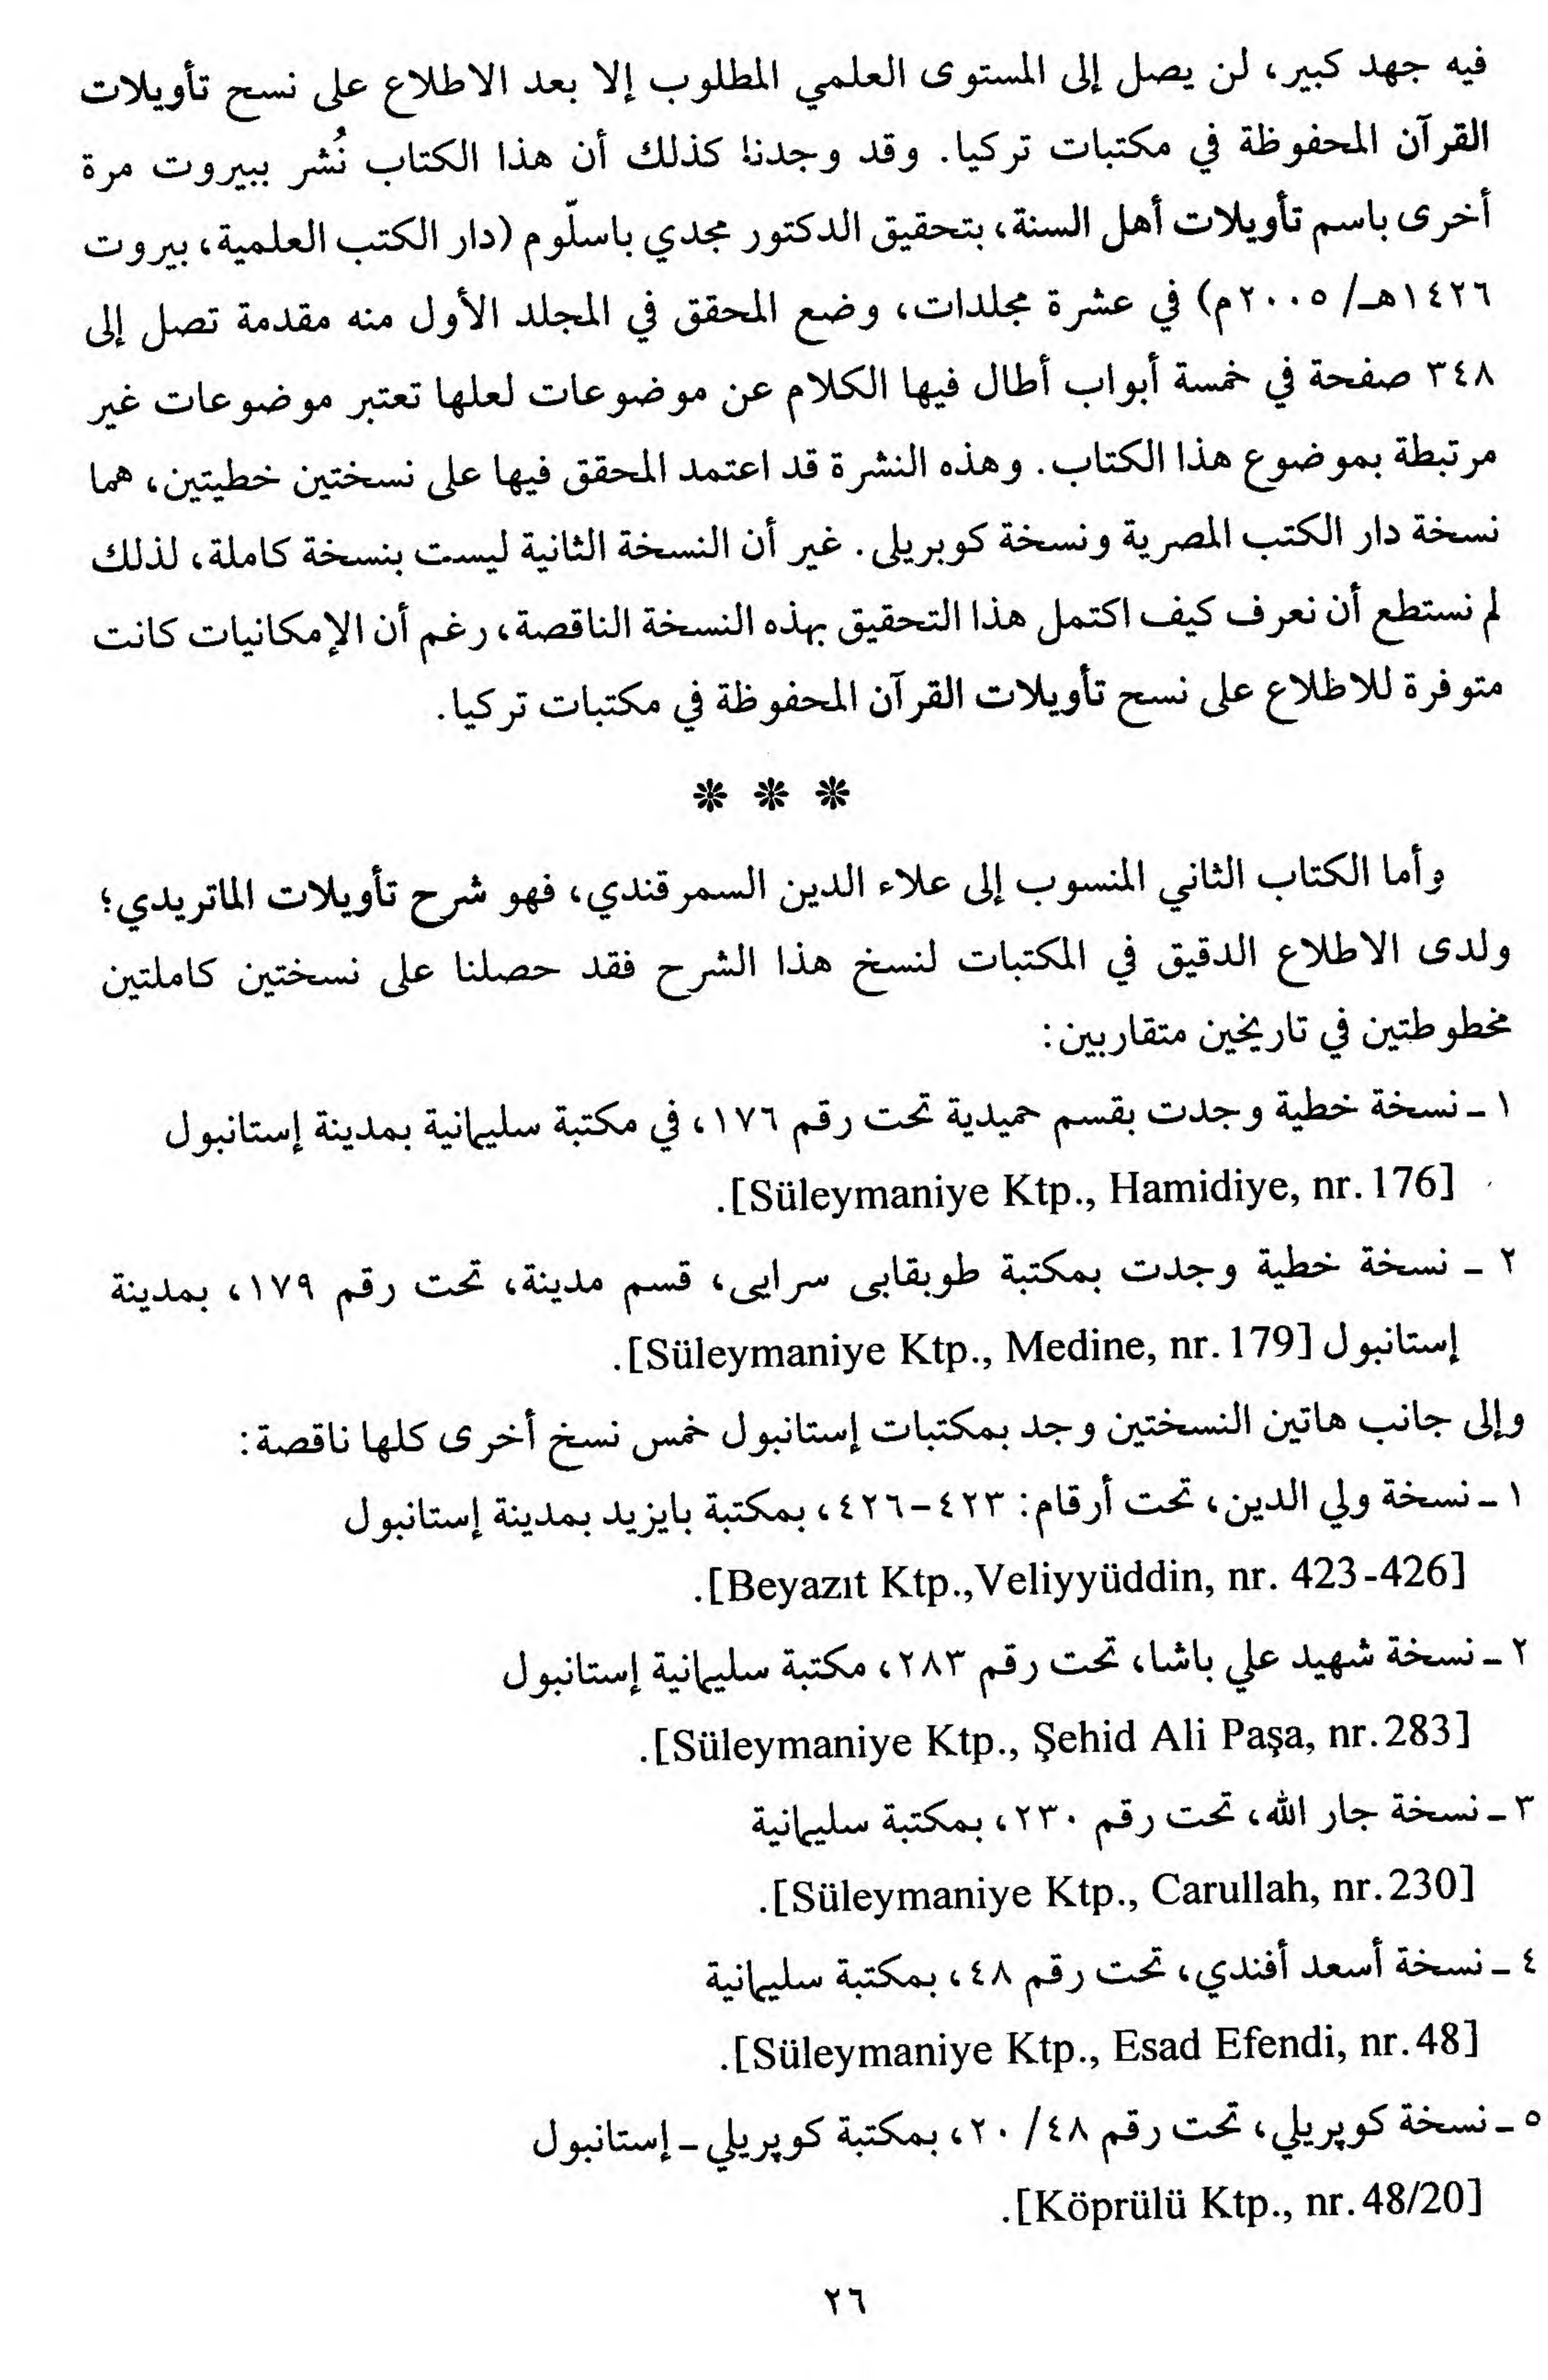 فيه جهد كبير، لن يصل إلى المستوى العلمي المطلوب إلا بعد الاطلاع على نسح تأويلات
القرآن المحفوظة في مكتبات تركيا. وقد وجدنا كذلك أن هذا الكتاب نُشر ببيروت مرة
أخرى باسم تأويلات أهل السنة، بتحقيق الدكتور مجدي باسلّوم (دار الكتب العلمية، بيروت
١٤٢٦هـ/ ٢٠٠٥م) في عشرة مجلدات، وضع المحقق في المجلد الأول منه مقدمة تصل إلى
٣٤٨ صفحة في خمسة أبواب أطال فيها الكلام عن موضوعات لعلها تعتبر موضوعات غير
مرتبطة بموضوع هذا الكتاب. وهذه النشرة قد اعتمد المحقق فيها على نسختين خطيتين، هما
نسخة دار الكتب المصرية ونسخة كوبريلى. غير أن النسخة الثانية ليست بنسخة كاملة، لذلك
لم نستطع أن نعرف كيف اكتمل هذا التحقيق بهذه النسخة الناقصة، رغم أن الإمكانيات كانت
متوفرة للاظلاع على نسح تأويلات القرآن المحفوظة في مكتبات تركيا.
* * *
وأما الكتاب الثاني المنسوب إلى علاء الدين السمرقندي، فهو شرح تأويلات الماتريدي؛
ولدى الاطلاع الدقيق في المكتبات لنسخ هذا الشرح فقد حصلنا على نسختين كاملتين
مخطوطتين في تاريخين متقاربين:
١ - نسخة خطية وجدت بقسم حميدية تحت رقم ١٧٦، في مكتبة سليمانية بمدينة إستانبول
[Süleymaniye Ktp., Hamidiye, nr. 176].
٢ - نسخة خطية وجدت بمكتبة طوبقابى سرايى، قسم مدينة، تحت رقم ١٧٩، بمدينة
إستانبول [Süleymaniye Ktp., Medine, nr. 179].
وإلى جانب هاتين النسختين وجد بمكتبات إستانبول خمس نسخ أخرى كلها ناقصة:
١ - نسخة ولي الدين، تحت أرقام: ٤٢٣-٤٢٦، بمكتبة بايزيد بمدينة إستانبول
[Beyazıt Ktp.,Veliyyüddin, nr. 423-426].
٢ - نسخة شهيد علي باشا، تحت رقم ٢٨٣، مكتبة سليمانية إستانبول
[Süleymaniye Ktp., Şehid Ali Paşa, nr. 283].
٣ - نسخة جار الله، تحت رقم ٢٣٠، بمكتبة سليمانية
[Süleymaniye Ktp., Carullah, nr. 230].
٤ - نسخة أسعد أفندي، تحت رقم ٤٨، بمكتبة سليمانية
[Süleymaniye Ktp., Esad Efendi, nr. 48].
٥ - نسخة كوپريلي، تحت رقم ٤٨/ ٢٠، بمكتبة كوپريلي - إستانبول
[Köprülü Ktp., nr. 48/20].
٢٦